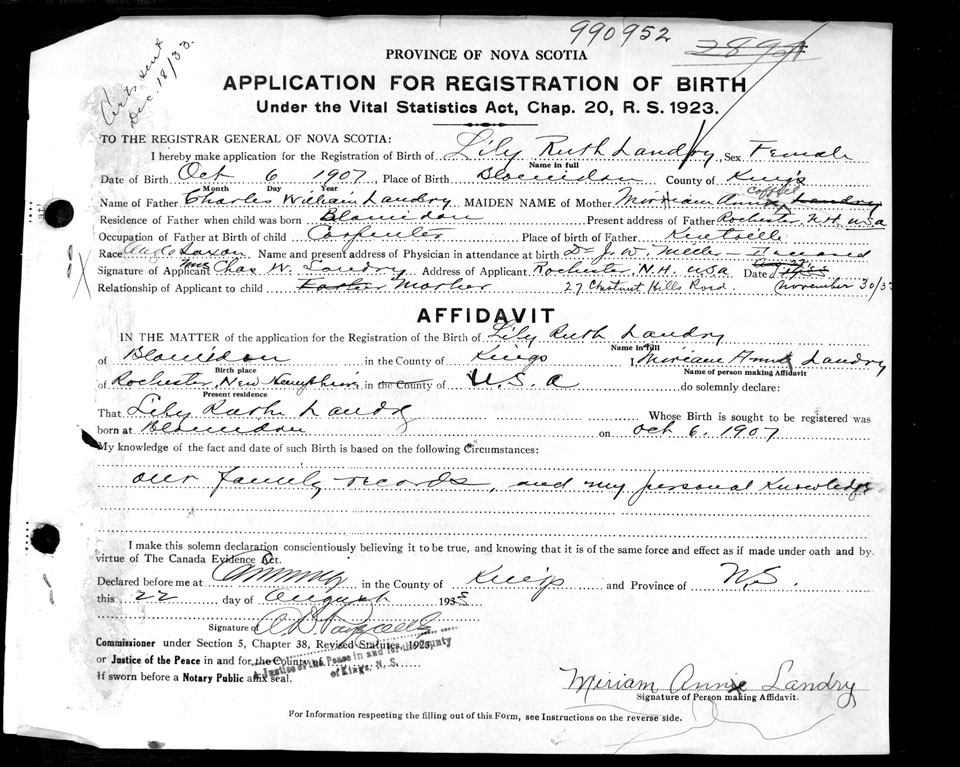 990952
Dec. 18/33.
PROVINCE OF NOVA SCOTIA
APPLICATION FOR REGISTRATION OF BIRTH
Under the Vital Statistics Act, Chap. 20, R. S. 1923.
TO THE REGISTRAR GENERAL OF NOVA SCOTIA:
I hereby make application for the Registration of Birth of Lily Ruth Landry Sex Female
Name in full
Date of Birth Oct 6 1907 Place of Birth Blomidon County of Kings
Month Day Year
Name of Father Charles William Landry MAIDEN NAME of Mother Miriam Anna Landry
Residence of Father when child was born Blomidon Present address of Father Rochester N.H. USA
Occupation of Father at Birth of child Carpenter Place of birth of Father
Race Anglo Saxon Name and present address of Physician in attendance at birth Dr J. W. Miller
Signature of Applicant Mrs Chas W. Landry Address of Applicant Rochester N.H. USA Date
Relationship of Applicant to child Father Mother 27 Chestnut Hills Road. November 30/33
AFFIDAVIT
IN THE MATTER of the application for the Registration of the Birth of Lily Ruth Landry
Name in full
of Blomidon in the County of Kings I Miriam Anna Landry
Birth place Name of person making Affidavit
of Rochester New Hampshire in the County of U.S.A do solemnly declare:
Present residence
That Lily Ruth Landry Whose Birth is sought to be registered was
born at Blomidon on Oct 6. 1907
My knowledge of the fact and date of such Birth is based on the following Circumstances:
our family records, and my personal Knowledge
I make this solemn declaration conscientiously believing it to be true, and knowing that it is of the same force and effect as if made under oath and by
virtue of The Canada Evidence Act.
Declared before me at in the County of Kings and Province of N.S.
this 22 day of August 1933
Signature of
Commissioner under Section 5, Chapter 38, Revised Statutes, 1923,
or Justice of the Peace in and for the County of
a Justice of the Peace in and for the County
of Kings, N. S.
If sworn before a Notary Public affix seal.
Miriam Anna Landry
Signature of Person making Affidavit.
For Information respecting the filling out of this Form, see Instructions on the reverse side.